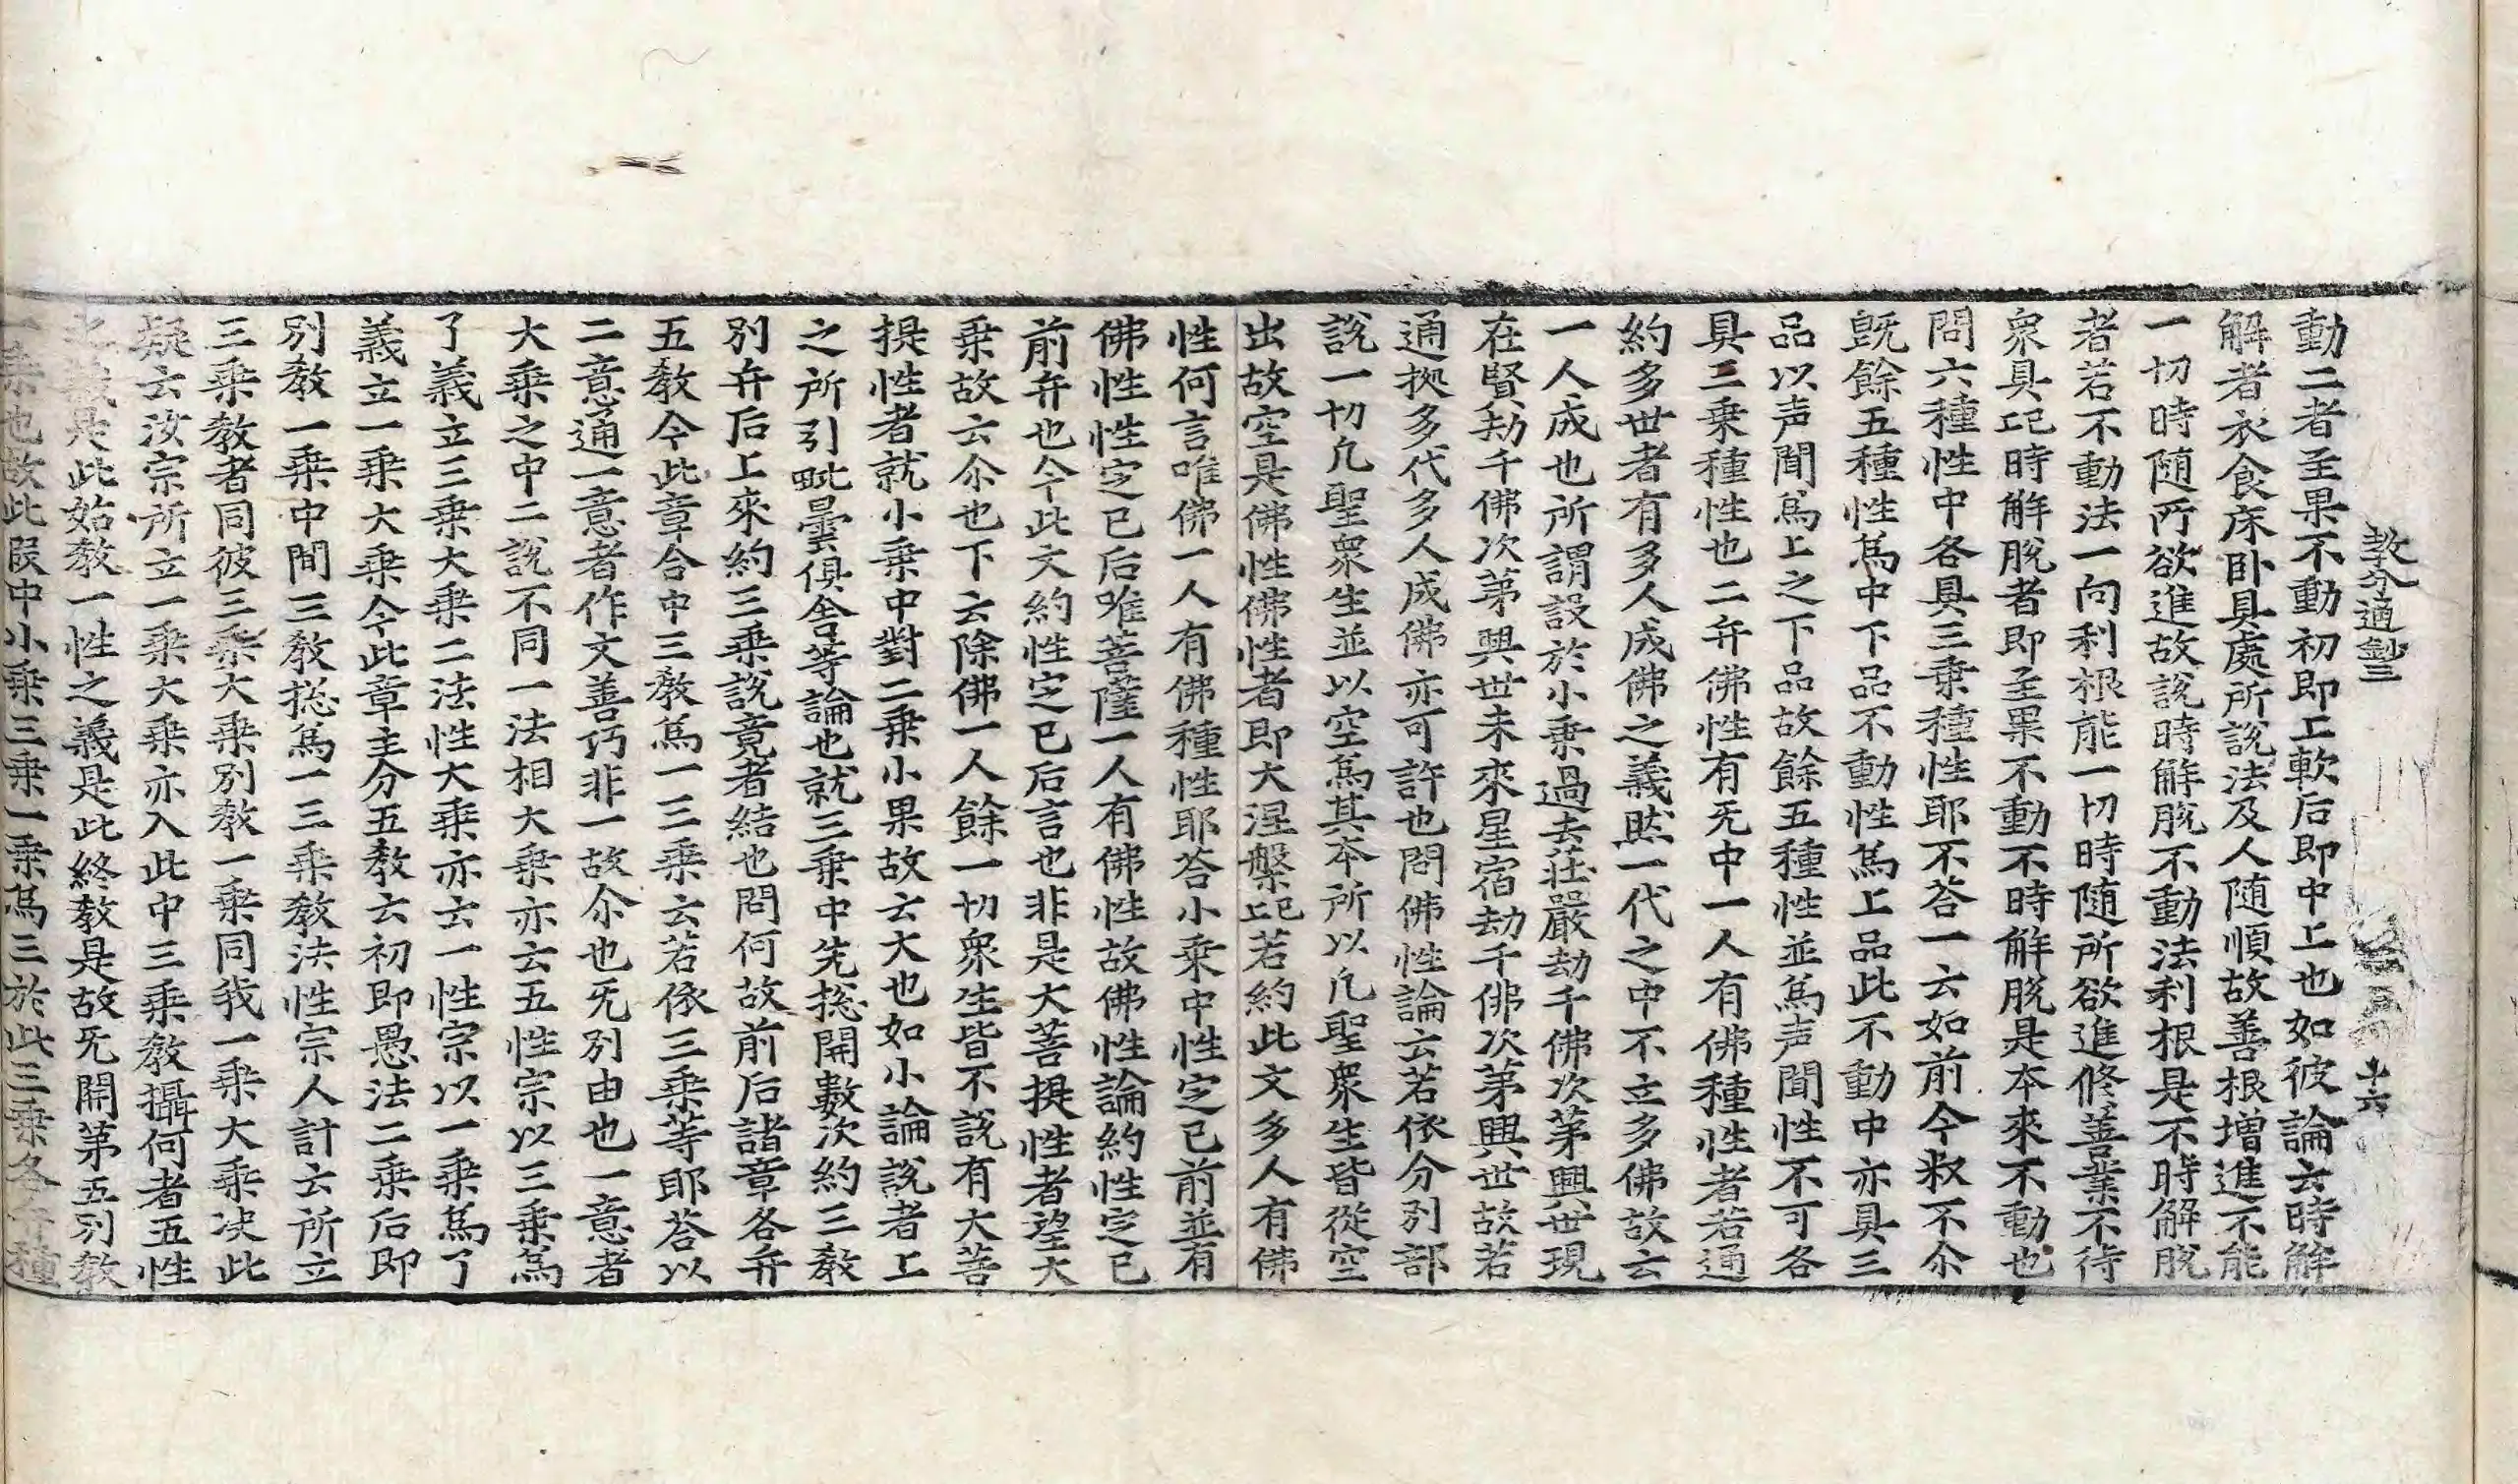 教分通鈔三 十六
動二者至果不動初即上軟后即中上也如彼論云時解
解者衣食床卧具處所說法及人随順故善根增進不能
一切時随所欲進故說時解脫不動法利根是不時解脫
者若不動法一向利根能一切時随所欲進修善業不待
衆具記時解脫者即至果不動不時解脫是本來不動也
問六種性中各具三乗種性耶不荅一云如前今叙不尒
旣餘五種性爲中下品不動性爲上品此不動中亦具三
品以声聞爲上之下品故餘五種性並爲声聞性不可各
具三乗種性也二弁佛性有旡中一人有佛種性者若通
約多世者有多人成佛之義然一代之中不立多佛故云
一人成也所謂設於小乗過去莊嚴劫千佛次苐興世現
在賢劫千佛次苐興世未來星宿劫千佛次苐興世故若
通拠多代多人成佛亦可許也問佛性論云若依分別部
說一切凡聖衆生並以空爲其本所以凡聖衆生皆從空
出故空是佛性佛性者即大涅槃記若約此文多人有佛
性何言唯佛一人有佛種性耶荅小乗中性定已前並有
佛性性定已后唯菩薩一人有佛性故佛性論約性定已
前弁也今此文約性定已后言也非是大菩提性者望大
乗故云尒也下云除佛一人餘一切衆生皆不說有大菩
提性者就小乗中對二乗小果故云大也如小論說者上
之所引毗曇俱舍等論也就三乗中先捴開數次約三教
別弁后上來約三乗說竟者結也問何故前后諸章各弁
五教今此章合中三教爲一三乗云若依三乗等耶荅以
二意通一意者作文善巧非一故尒也旡別由也一意者
大乗之中二說不同一法相大乗亦云五性宗以三乗爲
了義立三乗大乗二法性大乗亦云一性宗以一乗爲了
義立一乗大乗今此章主分五教云初即愚法二乗后即
別教一乗中間三教捴爲一三乗教法性宗人計云所立
三乗教者同彼三乗大乗別教一乗同我一乗大乗决此
疑云汝宗所立一乗大乗亦入此中三乗教攝何者五性
之義是此始教一性之義是此終教是故旡開苐五別教
一乗也故此段中小乗三乗一乗爲三於此三乗各弁種